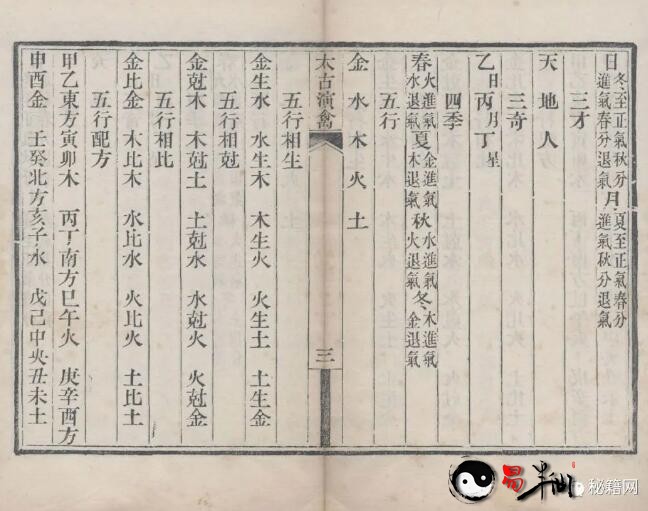 日冬至正氣秋分進氣春分退氣 月夏至正氣春分進氣秋分退氣
三才
天 地 人
三奇
乙日 丙月 丁星
四季
春火進氣水退氣 夏金進氣木退氣 秋水進氣火退氣 冬木進氣金退氣
五行
金 水 木 火 土
太古演禽 三
五行相生
金生水 水生木 木生火 火生土 土生金
五行相尅
金尅木 木尅土 土尅水 水尅火 火尅金
五行相比
金比金 木比木 水比水 火比火 土比土
五行配方
甲乙東方寅卯木 丙丁南方巳午火 庚辛酉方
申酉金 壬癸北方亥子水 戊己中央丑未土
易半仙
秘籍网